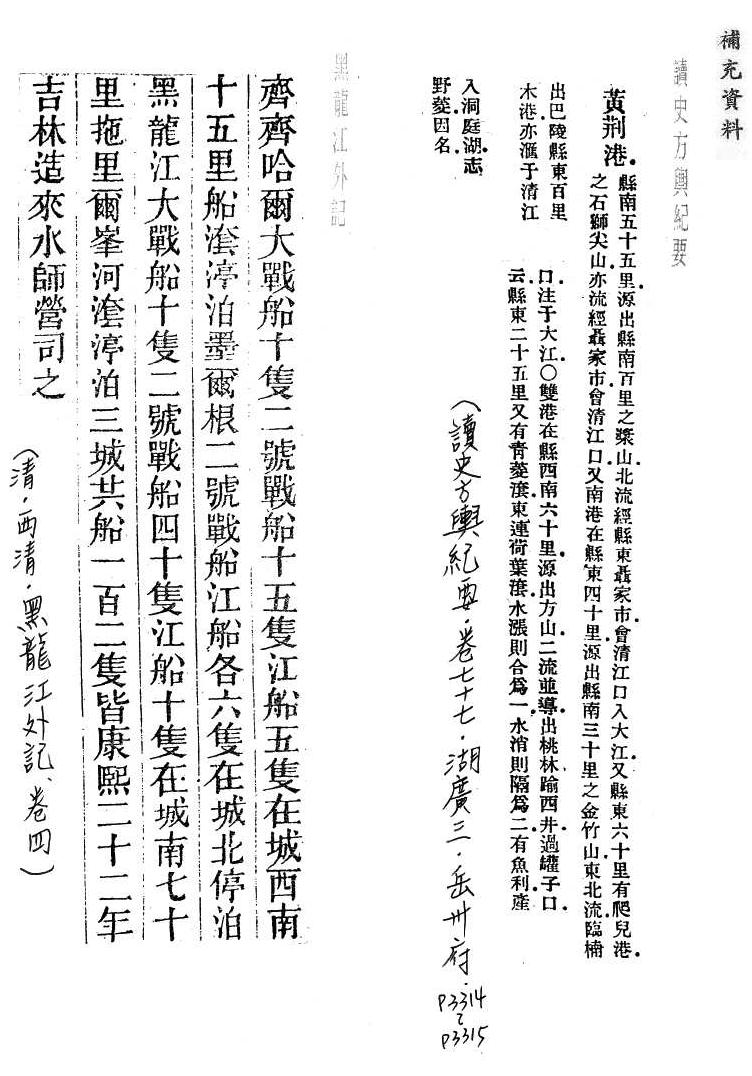 補充資料
讀史方輿紀要
黃荆港
縣南五十五里源出縣南百里之槳山北流經縣東聶家市會清江口入大江又縣東六十里有爬兒港
之石獅尖山亦流經聶家市會清江口又南港在縣東四十里源出縣南三十里之金竹山東北流臨楠
出巴陵縣東百里
木港亦滙于清江
口注于大江〇雙港在縣西南六十里源出方山二流並導出桃林踰西井過罐子口
云縣東二十五里又有青菱東連荷葉水漲則合爲一水消則隔爲二有魚利產
入洞庭湖志
野菱因名
(讀史方輿紀要·卷七十七·湖廣三·岳州府·P3314~P3315)
黑龍江外記
齊齊哈爾大戰船十隻二號戰船十五隻江船五隻在城西南
十五里船渰渟泊墨爾根二號戰船江船各六隻在城北停泊
黑龍江大戰船十隻二號戰船四十隻江船十隻在城南七十
里拖里爾峯河渰渟泊三城共船一百二隻皆康熙二十二年
吉林造來水師營司之
(清·西清·黑龍江外記、卷四)